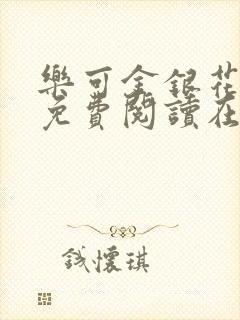 樂可金銀花
免費閱讀在
錢懷琪